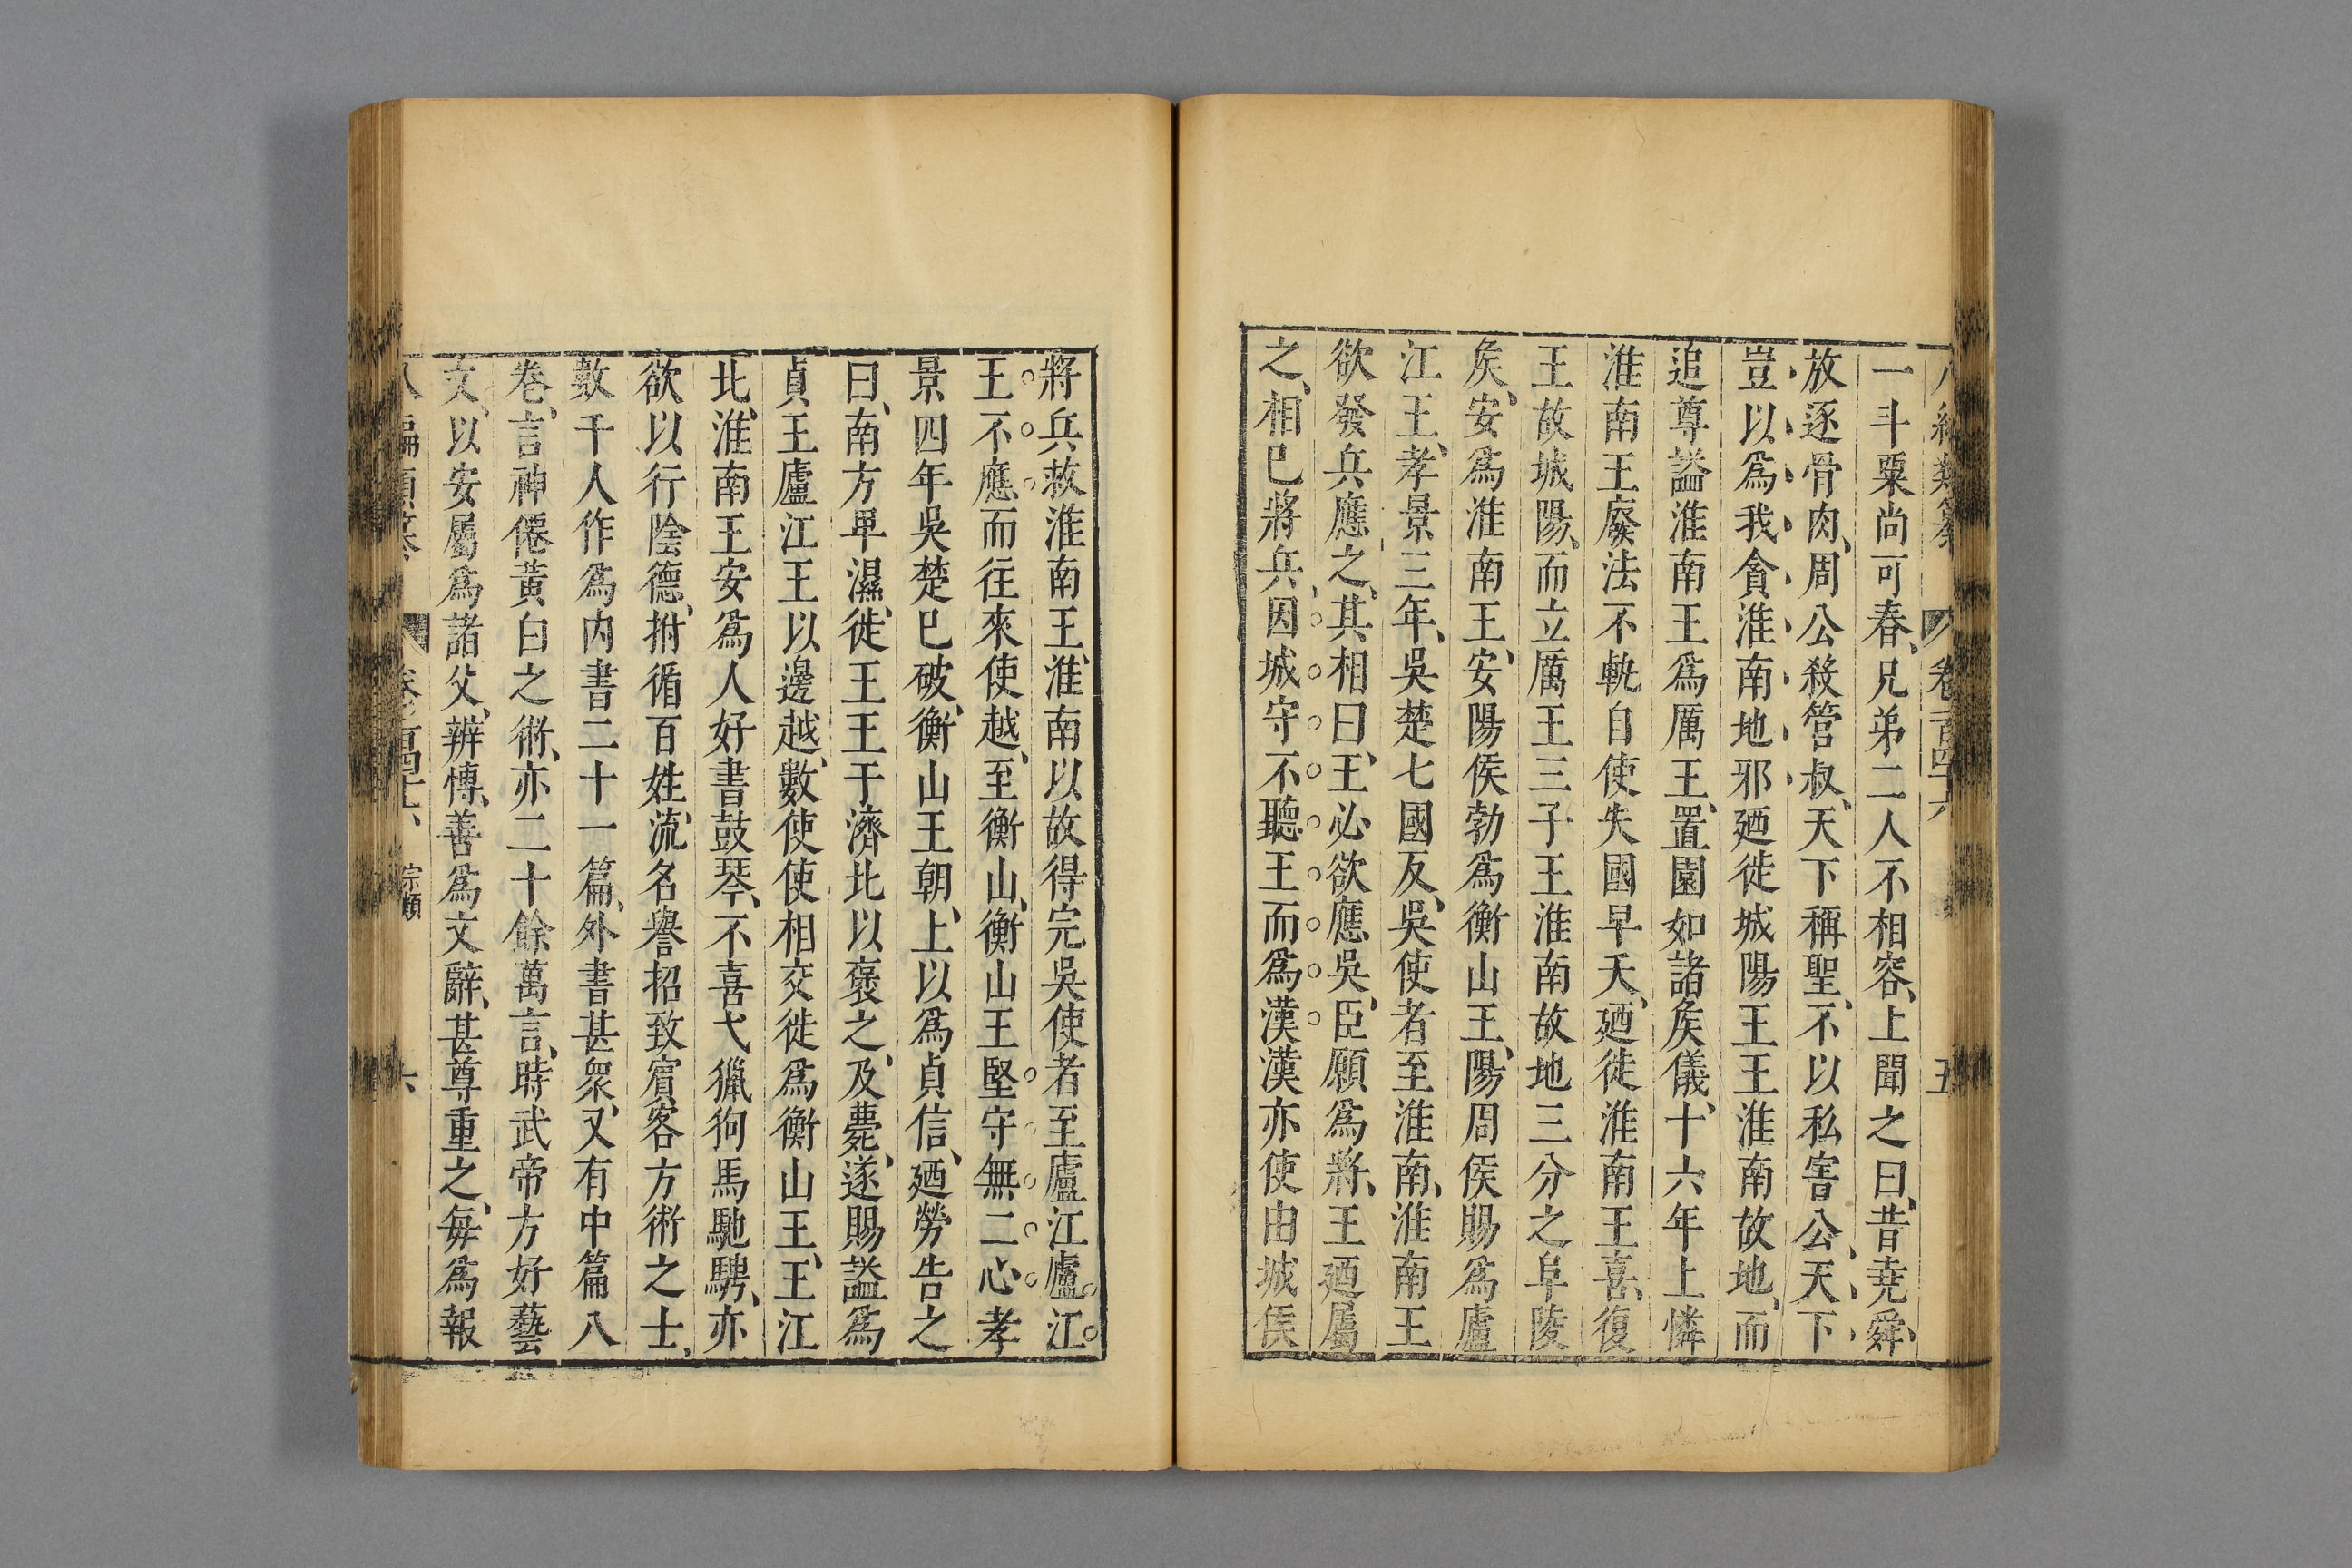 八編類纂 卷一百四十六 五
一斗粟尚可舂、兄弟二人不相容、上聞之曰、昔堯舜、
放逐骨肉、周公殺管叔、天下稱聖、不以私害公、天下、
豈以爲我貪淮南地邪廼徙城陽王王淮南故地、而
追尊謚淮南王爲厲王、置園如諸矦儀、十六年上憐
淮南王廢法不軌自使失國早夭、廼徙淮南王喜、復
王故城陽、而立厲王三子王淮南故地三分之阜陵
矦、安爲淮南王、安陽侯勃爲衡山王、陽周侯賜爲廬
江王、孝景三年、吳楚七國反、吳使者至淮南、淮南王
欲發兵應之、其相曰、王必欲應吳、臣願爲將、王廼屬
之、相已將兵、因城守不聽王而爲漢漢亦使由城侯
將兵救淮南王、淮南以故得完吳使者至廬江廬江
王不應而往來使越、至衡山、衡山王堅守無二心孝
景四年吳楚已破、衡山王朝、上以爲貞信、廼勞告之
曰、南方卑濕、徙王王于濟北以褒之、及薨、遂賜謚爲
貞王廬江王以邊越、數使使相交徙爲衡山王、王江
北、淮南王安爲人好書鼓琴、不喜弋獵狗馬馳騁、亦
欲以行陰德、拊循百姓、流名譽招致賓客方術之士、
數千人作爲内書二十一篇、外書甚衆、又有中篇八
卷、言神僊黃白之術、亦二十餘萬言、時武帝方好藝
文、以安屬爲諸父、辨博、善爲文辭、甚尊重之、每爲報
八編類纂 卷一百四十六 宗類 六